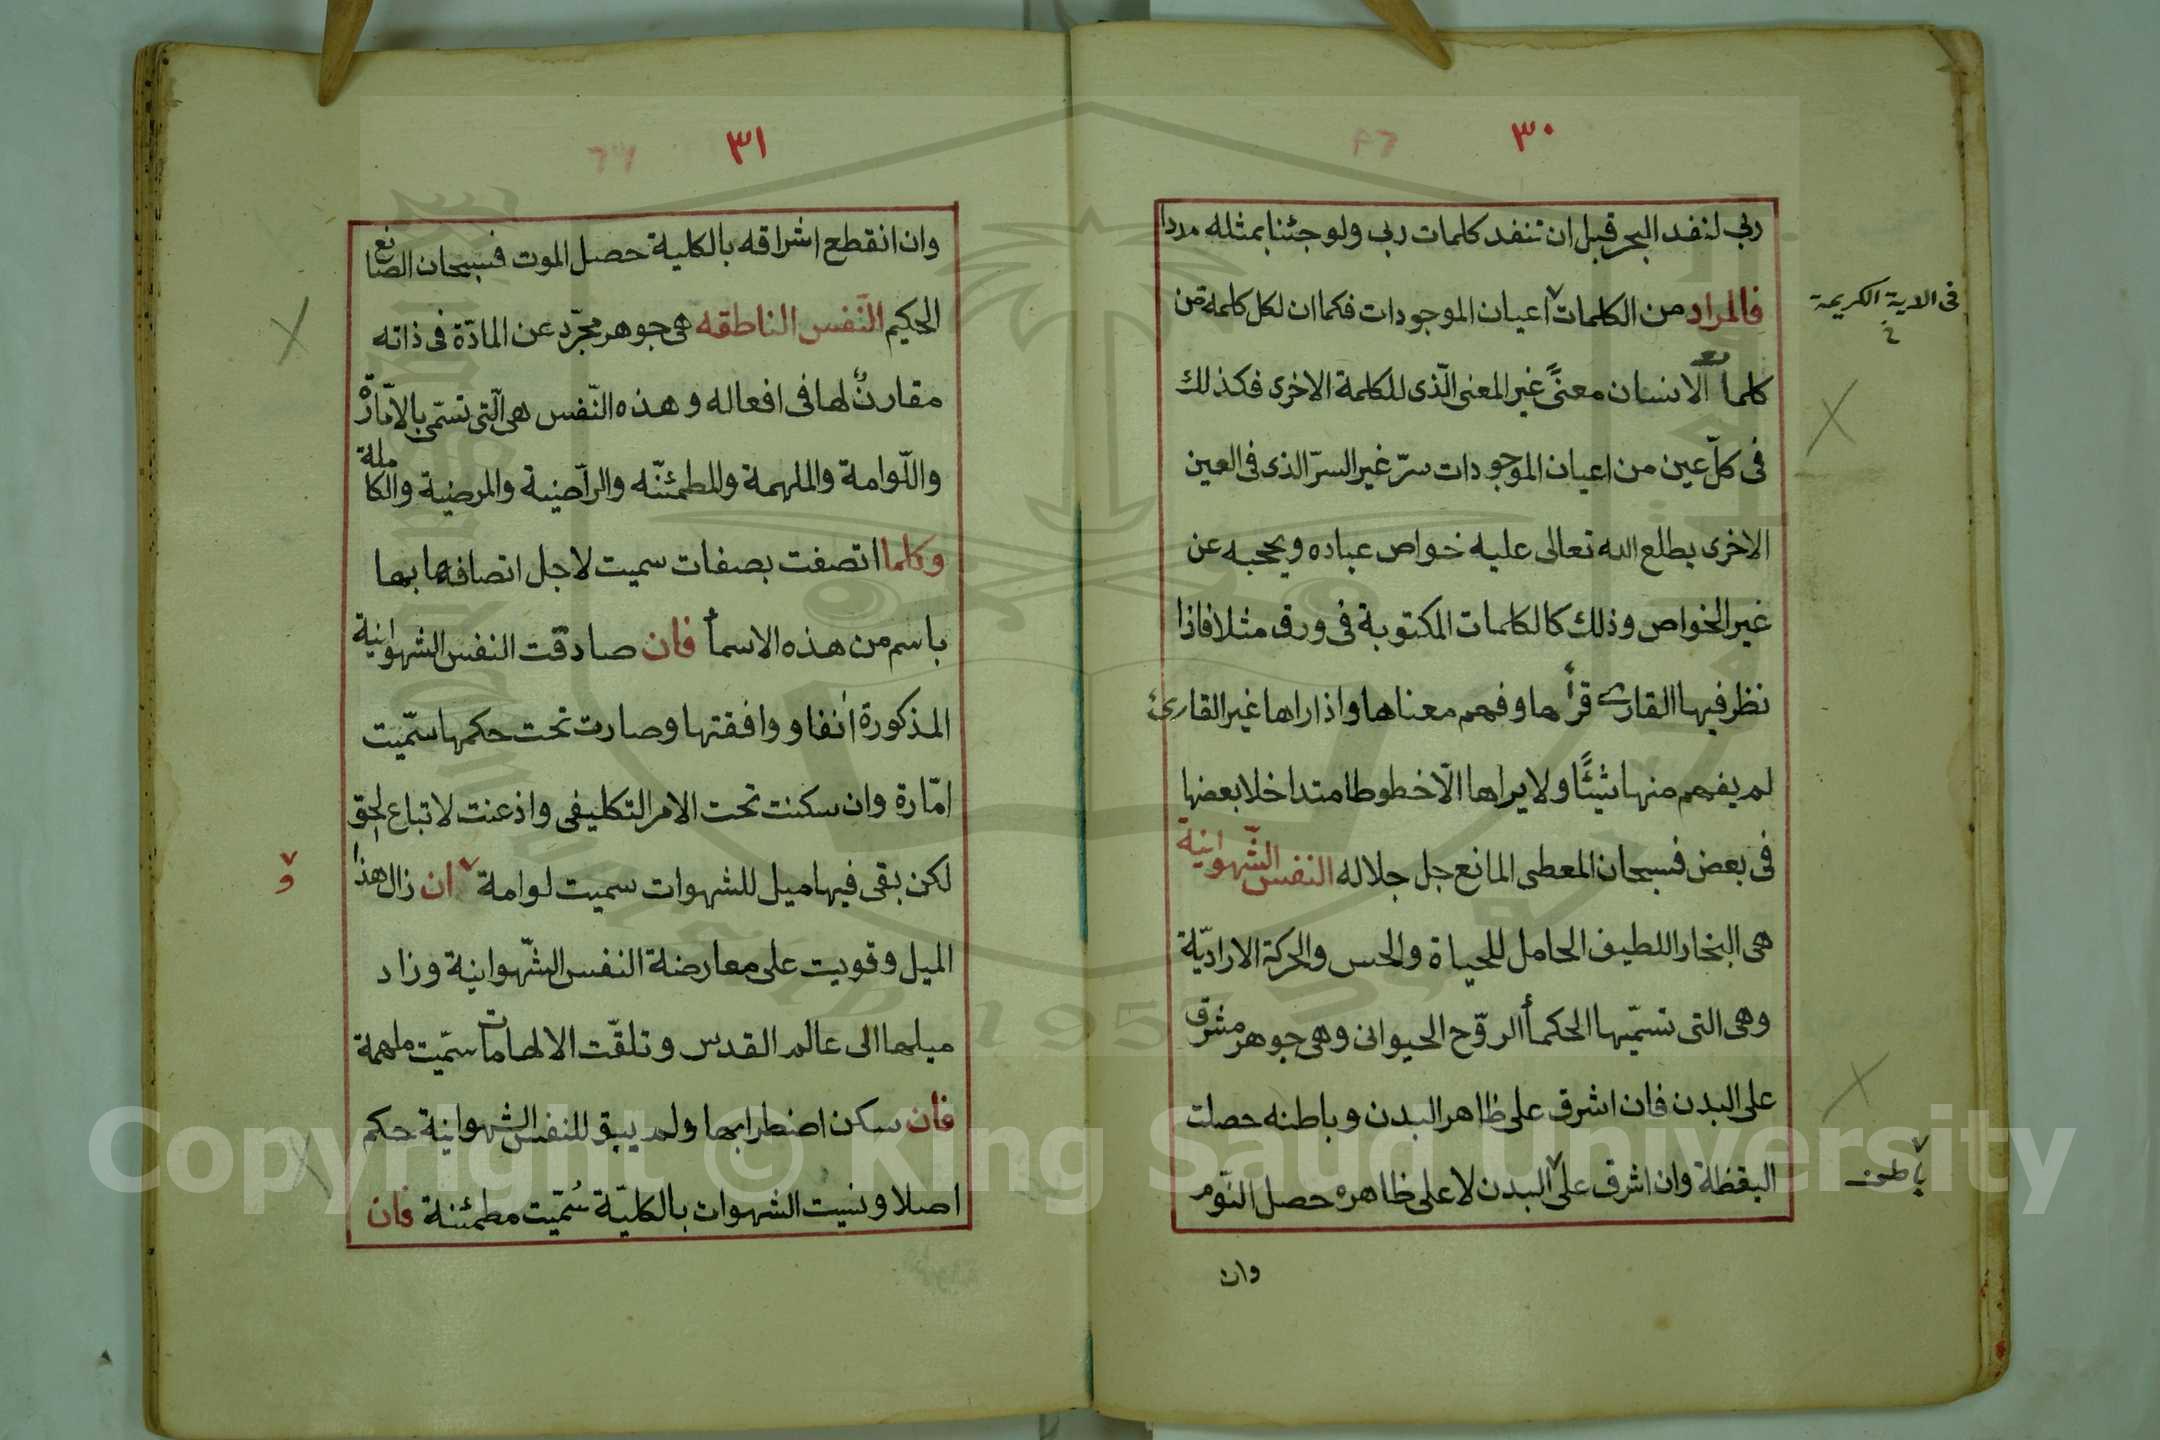 ٣٠
ربي لنفد البحر قبل ان تنفد كلمات ربي ولو جئنا بمثله مددا
فالمراد من الكلمات اعيان الموجودات فكما ان لكل كلمة من
في الاية الكريمة
كلمات الانسان معنًى غير المعنى الّذى للكلمة الاخرى فكذلك
فى كلّ عين من اعيان الموجودات سرّ غير السرّ الذى فى العين
الاخرى يطلع الله تعالى عليه خواص عباده ويحجبه عن
غير الخواص وذلك كالكلمات المكتوبة فى ورق مثلا فاذا
نظر فيها القارئ قرأها وفهم معناها واذا راها غير القارئ
لم يفهم منها شيئًا ولا يراها الّا خطوطا متداخلا بعضها
فى بعض فسبحان المعطى المانع جل جلاله النفس الشّهوانية
هى البخار اللطيف الحامل للحياة والحس والحركة الاراديّة
وهى التى تسمّيها الحكمأ الروّح الحيوانى وهى جوهر مشرق
على البدن فان اشرق على ظاهر البدن وباطنه حصلت
اليقظة وان اشرق على البدن لا على ظاهره حصل النّوم
باطن
وان
٣١
وان انقطع اشراقه بالكلية حصل الموت فسبحان الصانع
الحكيم النّفس الناطقه هى جوهر مجرّد عن المادّة فى ذاته
مقارنٌ لها فى افعاله وهذه النّفس هى الّتى تسمّى بالامّارّة
واللّوامة والملهمة والمطمئنّه والرّاضية والمرضية والكاملة
وكلما اتصفت بصفات سميت لاجل اتصافها بها
باسم من هذه الاسمأ فان صادقت النفس الشهوانية
المذكورة انفا ووافقتها وصارت تحت حكمها سمّيت
امّارة وان سكنت تحت الامر التكليفى واذعنت لاتباع الحق
لكن بقى فيها ميل للشهوات سميت لوامة ان زال هذا
و
الميل وقويت على معارضة النفس الشّهوانية وزاد
ميلها الى عالم القدس وتلقّت الالهامات سمّيت ملهمة
فان سكن اضطرابها ولم يبق للنفس الشهوانية حكم
اصلا ونسيت الشهوات بالكليّة سُمّيت مطمئنة فان
Copyright © King Saud University